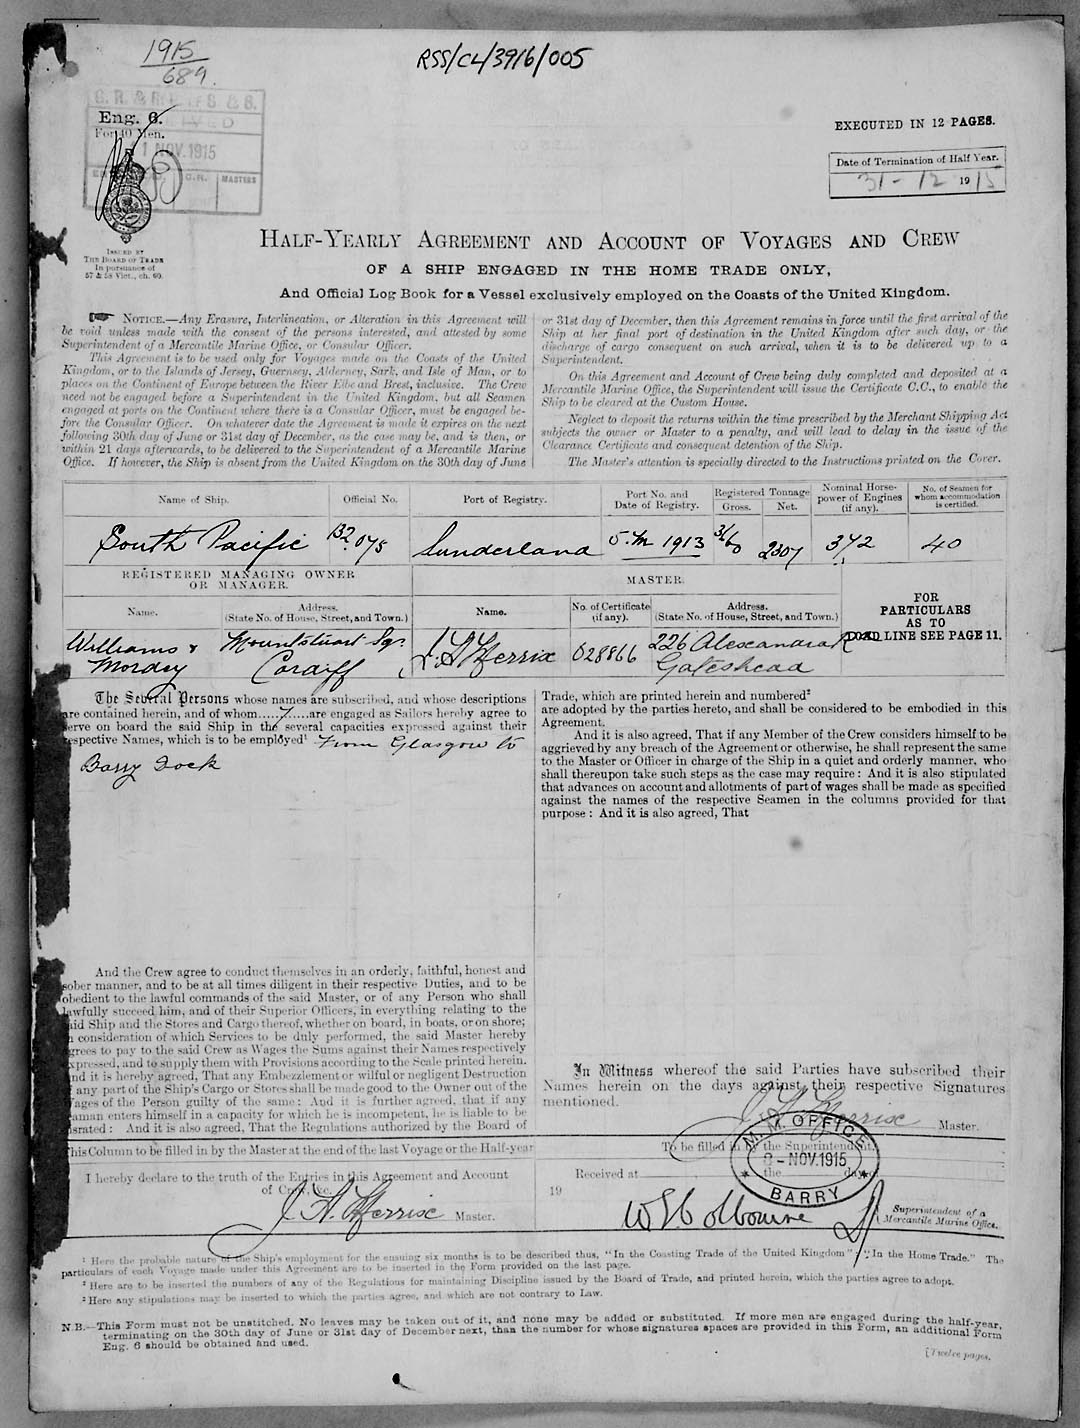 1915
689.
RSS/CL/3916/005
RECEIVED
1 NOV. 1915
C.R. MASTERS
Eng. 6.
For 40 Men.
ISSUED BY
THE BOARD OF TRADE
In pursuance of
57 & 58 Vict., ch. 60.
EXECUTED IN 12 PAGES.
Date of Termination of Half Year.
31 - 12 1915
HALF-YEARLY AGREEMENT AND ACCOUNT OF VOYAGES AND CREW
OF A SHIP ENGAGED IN THE HOME TRADE ONLY,
And Official Log Book for a Vessel exclusively employed on the Coasts of the United Kingdom.
NOTICE.—Any Erasure, Interlineation, or Alteration in this Agreement will
be void unless made with the consent of the persons interested, and attested by some
Superintendent of a Mercantile Marine Office, or Consular Officer.
This Agreement is to be used only for Voyages made on the Coasts of the United
Kingdom, or to the Islands of Jersey, Guernsey, Alderney, Sark, and Isle of Man, or to
places on the Continent of Europe between the River Elbe and Brest, inclusive. The Crew
need not be engaged before a Superintendent in the United Kingdom, but all Seamen
engaged at ports on the Continent where there is a Consular Officer, must be engaged be-
fore the Consular Officer. On whatever date the Agreement is made it expires on the next
following 30th day of June or 31st day of December, as the case may be, and is then, or
within 21 days afterwards, to be delivered to the Superintendent of a Mercantile Marine
Office. If however, the Ship is absent from the United Kingdom on the 30th day of June
or 31st day of December, then this Agreement remains in force until the first arrival of the
Ship at her final port of destination in the United Kingdom after such day, or the
discharge of cargo consequent on such arrival, when it is to be delivered up to a
Superintendent.
On this Agreement and Account of Crew being duly completed and deposited at a
Mercantile Marine Office, the Superintendent will issue the Certificate C.C., to enable the
Ship to be cleared at the Custom House.
Neglect to deposit the returns within the time prescribed by the Merchant Shipping Act
subjects the owner or Master to a penalty, and will lead to delay in the issue of the
Clearance Certificate and consequent detention of the Ship.
The Master's attention is specially directed to the Instructions printed on the Cover.
Name of Ship. Official No. Port of Registry. Port No. and Date of Registry. Registered Tonnage Gross. Net. Nominal Horse-power of Engines (if any). No. of Seamen for whom accommodation is certified.
South Pacific 132.075 Sunderland 1913 2307 372 40
REGISTERED MANAGING OWNER
OR MANAGER.
MASTER.
Name. Address. (State No. of House, Street, and Town.) Name. No. of Certificate (if any). Address. (State No. of House, Street, and Town.)
FOR
PARTICULARS
AS TO
LOAD LINE SEE PAGE 11.
Williams & Mountstuart Sqr 028866 226 Alexandra Road
Mordey Cardiff Gateshead
The Several Persons whose names are subscribed, and whose descriptions
are contained herein, and of whom.....7....are engaged as Sailors hereby agree to
serve on board the said Ship in the several capacities expressed against their
respective Names, which is to be employed¹ From Glasgow to
Barry Dock
And the Crew agree to conduct themselves in an orderly, faithful, honest and
sober manner, and to be at all times diligent in their respective Duties, and to be
obedient to the lawful commands of the said Master, or of any Person who shall
lawfully succeed him, and of their Superior Officers, in everything relating to the
aid Ship and the Stores and Cargo thereof, whether on board, in boats, or on shore;
n consideration of which Services to be duly performed, the said Master hereby
grees to pay to the said Crew as Wages the Sums against their Names respectively
xpressed, and to supply them with Provisions according to the Scale printed herein.
nd it is hereby agreed, That any Embezzlement or wilful or negligent Destruction
f any part of the Ship's Cargo or Stores shall be made good to the Owner out of the
ages of the Person guilty of the same: And it is further agreed, that if any
eaman enters himself in a capacity for which he is incompetent, he is liable to be
israted: And it is also agreed, That the Regulations authorized by the Board of
Trade, which are printed herein and numbered²
are adopted by the parties hereto, and shall be considered to be embodied in this
Agreement.
And it is also agreed, That if any Member of the Crew considers himself to be
aggrieved by any breach of the Agreement or otherwise, he shall represent the same
to the Master or Officer in charge of the Ship in a quiet and orderly manner, who
shall thereupon take such steps as the case may require: And it is also stipulated
that advances on account and allotments of part of wages shall be made as specified
against the names of the respective Seamen in the columns provided for that
purpose: And it is also agreed, That
In Witness whereof the said Parties have subscribed their
Names herein on the days against their respective Signatures
mentioned.
Master.
This Column to be filled in by the Master at the end of the last Voyage or the Half-year
I hereby declare to the truth of the Entries in this Agreement and Account
of Crew, &c.
Master.
To be filled in by the Superintendent.
Received at the day of
19
M. M. OFFICE
8 - NOV. 1915
BARRY
Superintendent of a
Mercantile Marine Office.
¹ Here the probable nature of the Ship's employment for the ensuing six months is to be described thus, "In the Coasting Trade of the United Kingdom"; "In the Home Trade." The
particulars of each Voyage made under this Agreement are to be inserted in the Form provided on the last page.
² Here are to be inserted the numbers of any of the Regulations for maintaining Discipline issued by the Board of Trade, and printed herein, which the parties agree to adopt.
³ Here any stipulations may be inserted to which the parties agree, and which are not contrary to Law.
N.B.—This Form must not be unstitched. No leaves may be taken out of it, and none may be added or substituted. If more men are engaged during the half-year,
terminating on the 30th day of June or 31st day of December next, than the number for whose signatures spaces are provided in this Form, an additional Form
Eng. 6 should be obtained and used.
[Twelve pages.